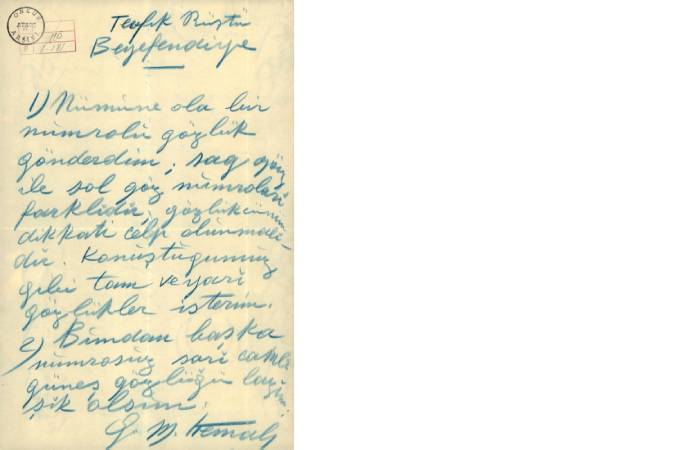 Tevfik Rüştü
Beyefendiye
1) Nümüne ola bir
nümrolü gözlük
gönderdim; sag göz
ile sol göz nümrolari
farklidir, gözlükcünün
dikkati celp olunmali-
dir. Konüştugumuz
gibi tam ve yari
gözlükler isterim.
2) Bundan başka
nümrosüz sari camli
güneş gözlügü lazim
şik olsun.
G. M. Kemal